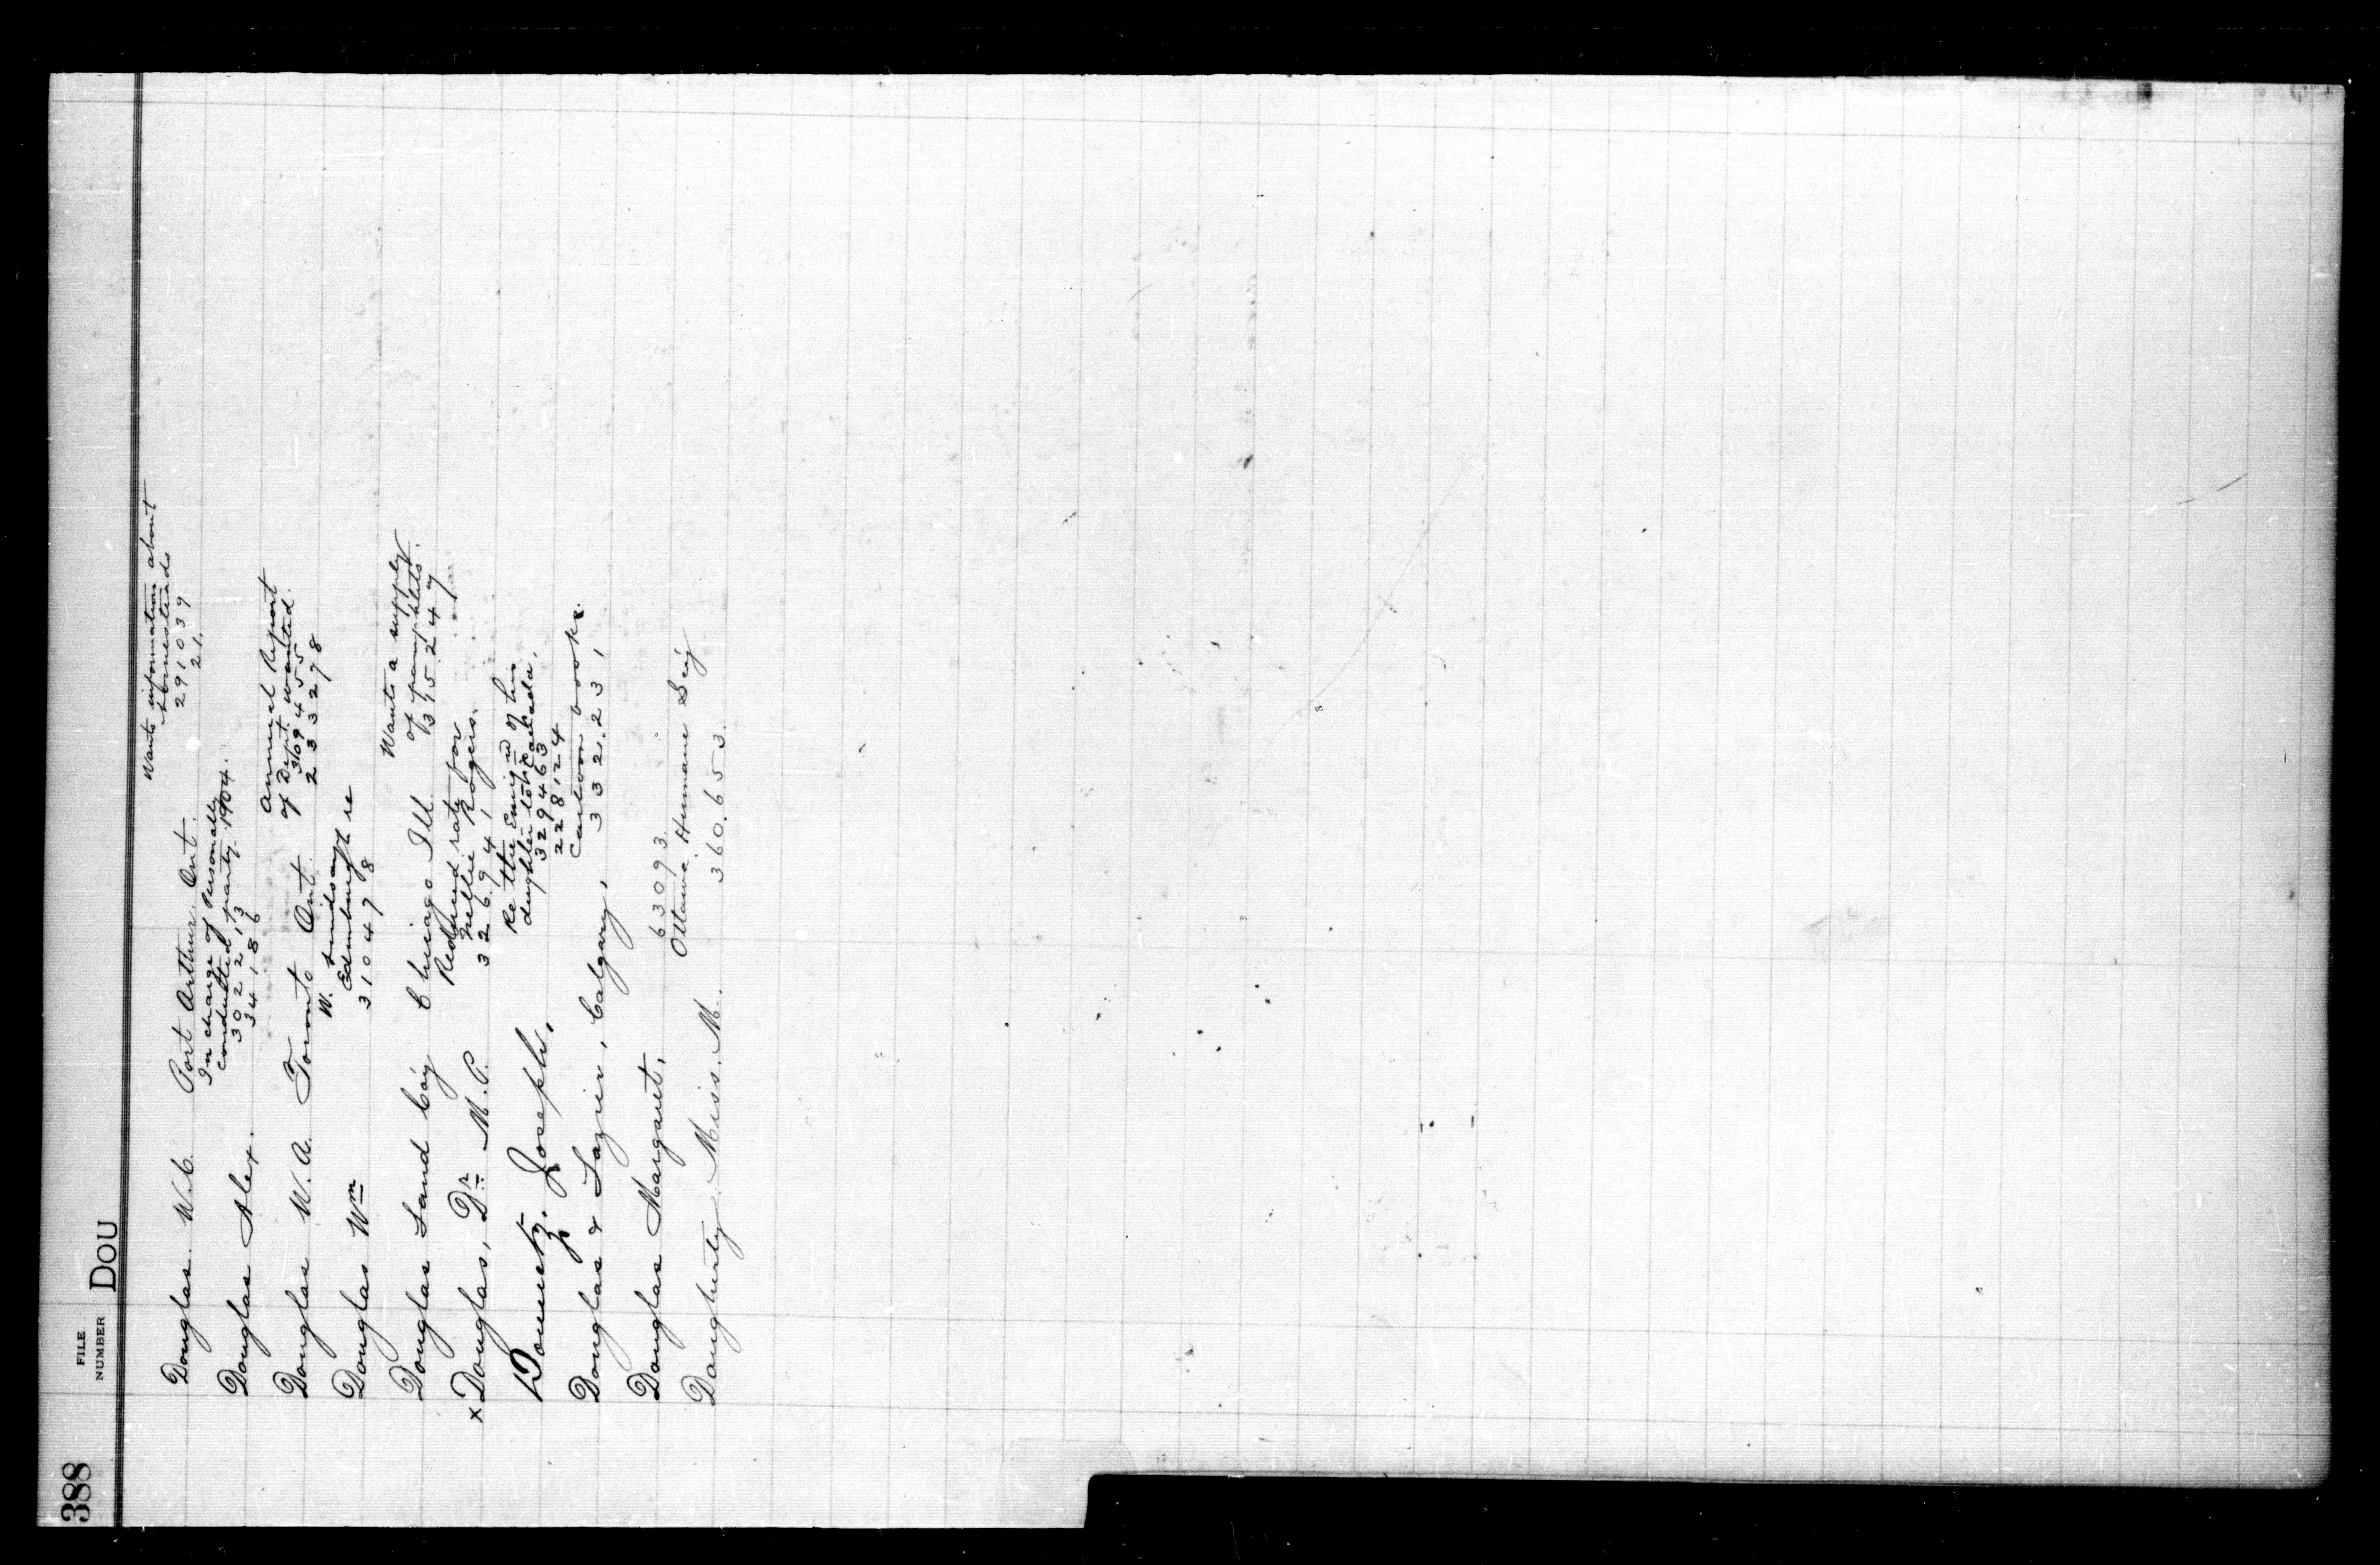 388
FILE
NUMBER
DOU
Wants information about
Douglas. W.C. Port Arthur. Ont. homesteads
291039
21.
In charge of Personally
Douglas Alex. conducted party. 1904.
302213
34186
Annual Report
Douglas W.A. Toronto Ont. of Dept. wanted.
3109455
233278
W.
Douglas Wm Edinburgh re
310478
Wants a supply
Douglas Land Coy Chicago Ill. of pamphlets.
395247
Reduced rate for
x Douglas, Dr. M.P. Nellie Rogers.
326941
Re the Emig'n of his
Joseph, daughter to Canada.
329463
228124
Cartoon books.
Douglas & Lazier, Calgary, 332.231
Douglas Margaret, 63093
Ottawa Humane Soc'y
Dougherty Miss. M. 360.653.